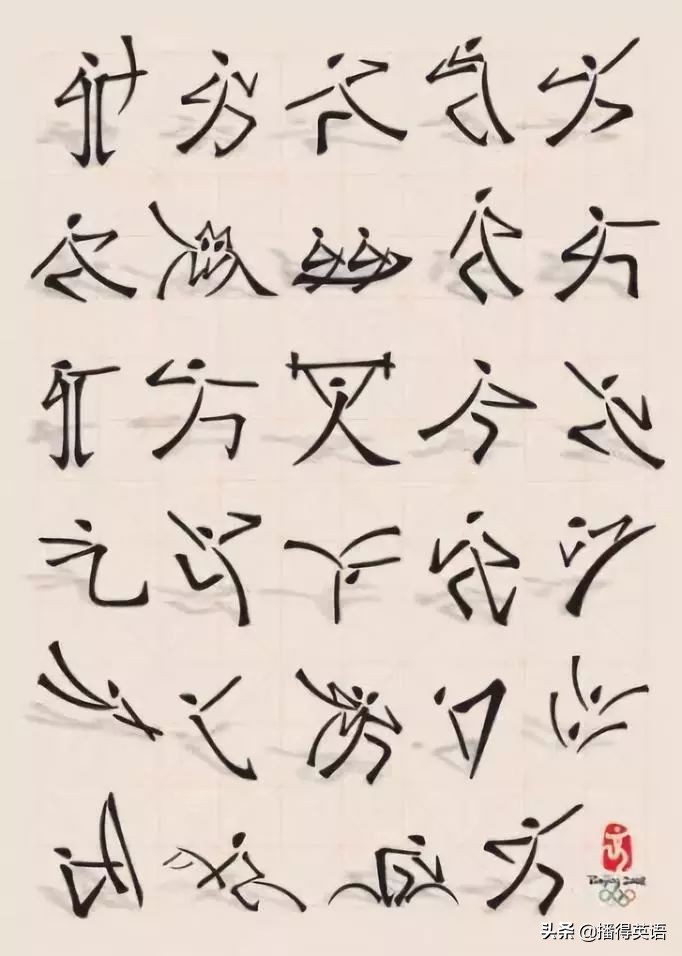 Beijing 2008
头条 @播得英语